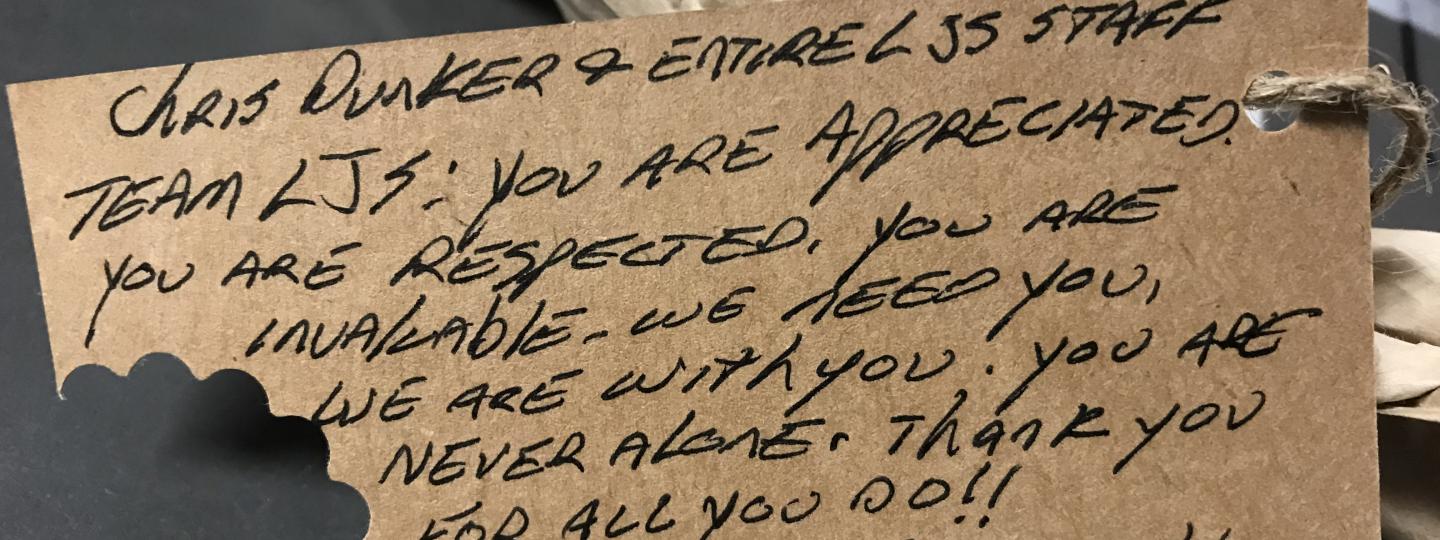 Chris Dunker & ENTIRE LJS STAFF
TEAM LJS: you ARE APPRECIATED.
you ARE RESPECTED. you ARE
INVALUABLE. WE NEED YOU,
WE ARE WITH YOU. YOU ARE
NEVER ALONE. Thank you
FOR ALL YOU DO!!